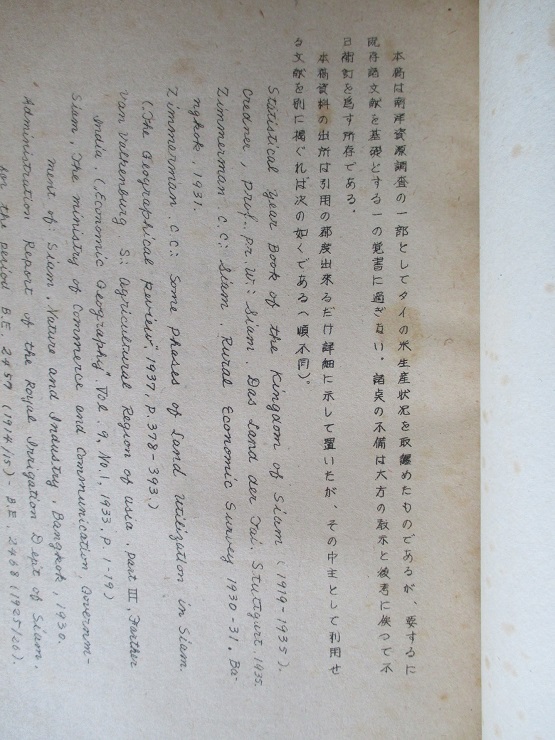 本稿は南洋資源調査の一部としてタイの米生産状況を取纏めたものであるが、要するに
既存諸文献を基礎とする一の覚書に過ぎない。諸点の不備は大方の教示と後考に俟つて不
日補訂を為す所存である。
本稿資料の出所は引用の都度出来るだけ詳細に示して置いたが、その中主として利用せ
る文献を別に掲ぐれば次の如くである(順不同)。
Statistical Year Book of the Kingdom of Siam (1919-1935).
Credner, Prof. Dr. W.: Siam. Das Land der Tai. Stuttgart. 1935.
Zimmerman C.C.: Siam. Rural Economic Survey 1930-31. Ba-
ngkok, 1931.
Zimmerman. C.C: Some Phases of Land Utilization in Siam
(The Geographical Review" 1937, P.378-393)
Van Valkenburg S: Agricultural Region of Asia. Part III, Farther
India. (Economic Geography". Vol. 9, No.1, 1933, P.1-19)
Siam, The Ministry of Commerce and Communication, Governm-
ment of: Siam, Nature and Industry, Bangkok, 1930.
Administration Report of the Royal Irrigation Dept of Siam.
for the period B.E. 2457 (1914/15) - B.E. 2468 (1925/26).